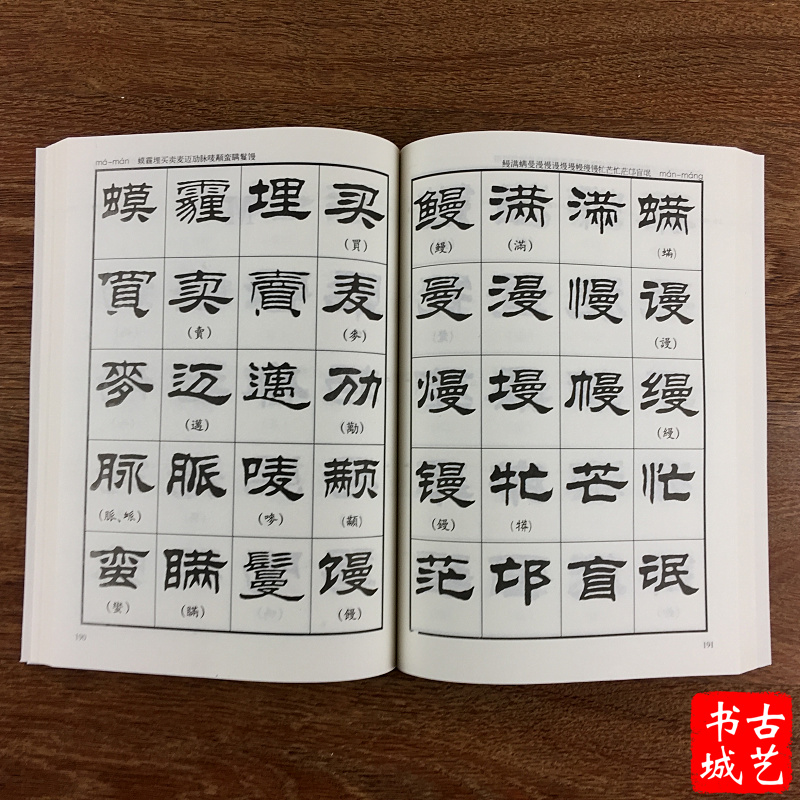 má-mán 蟆霾埋买卖麦迈劢脉唛颟蛮瞒鬘馒
蟆 霾 埋 买
(買)
買 卖 賣 麦
(賣) (麥)
麥 迈 邁 劢
(邁) (勱)
脉 脈 唛 颟
(脈、衇) (嘜) (顢)
蛮 瞒 鬘 馒
(蠻) (瞞) (饅)
190
mán-máng
鳗 满 滿 螨
(鰻) (滿) (蟎)
曼 漫 慢 谩
(謾)
熳 墁 幔 缦
(縵)
镘 牤 芒 忙
(鏝)
茫 邙 盲 氓
191
古艺书城